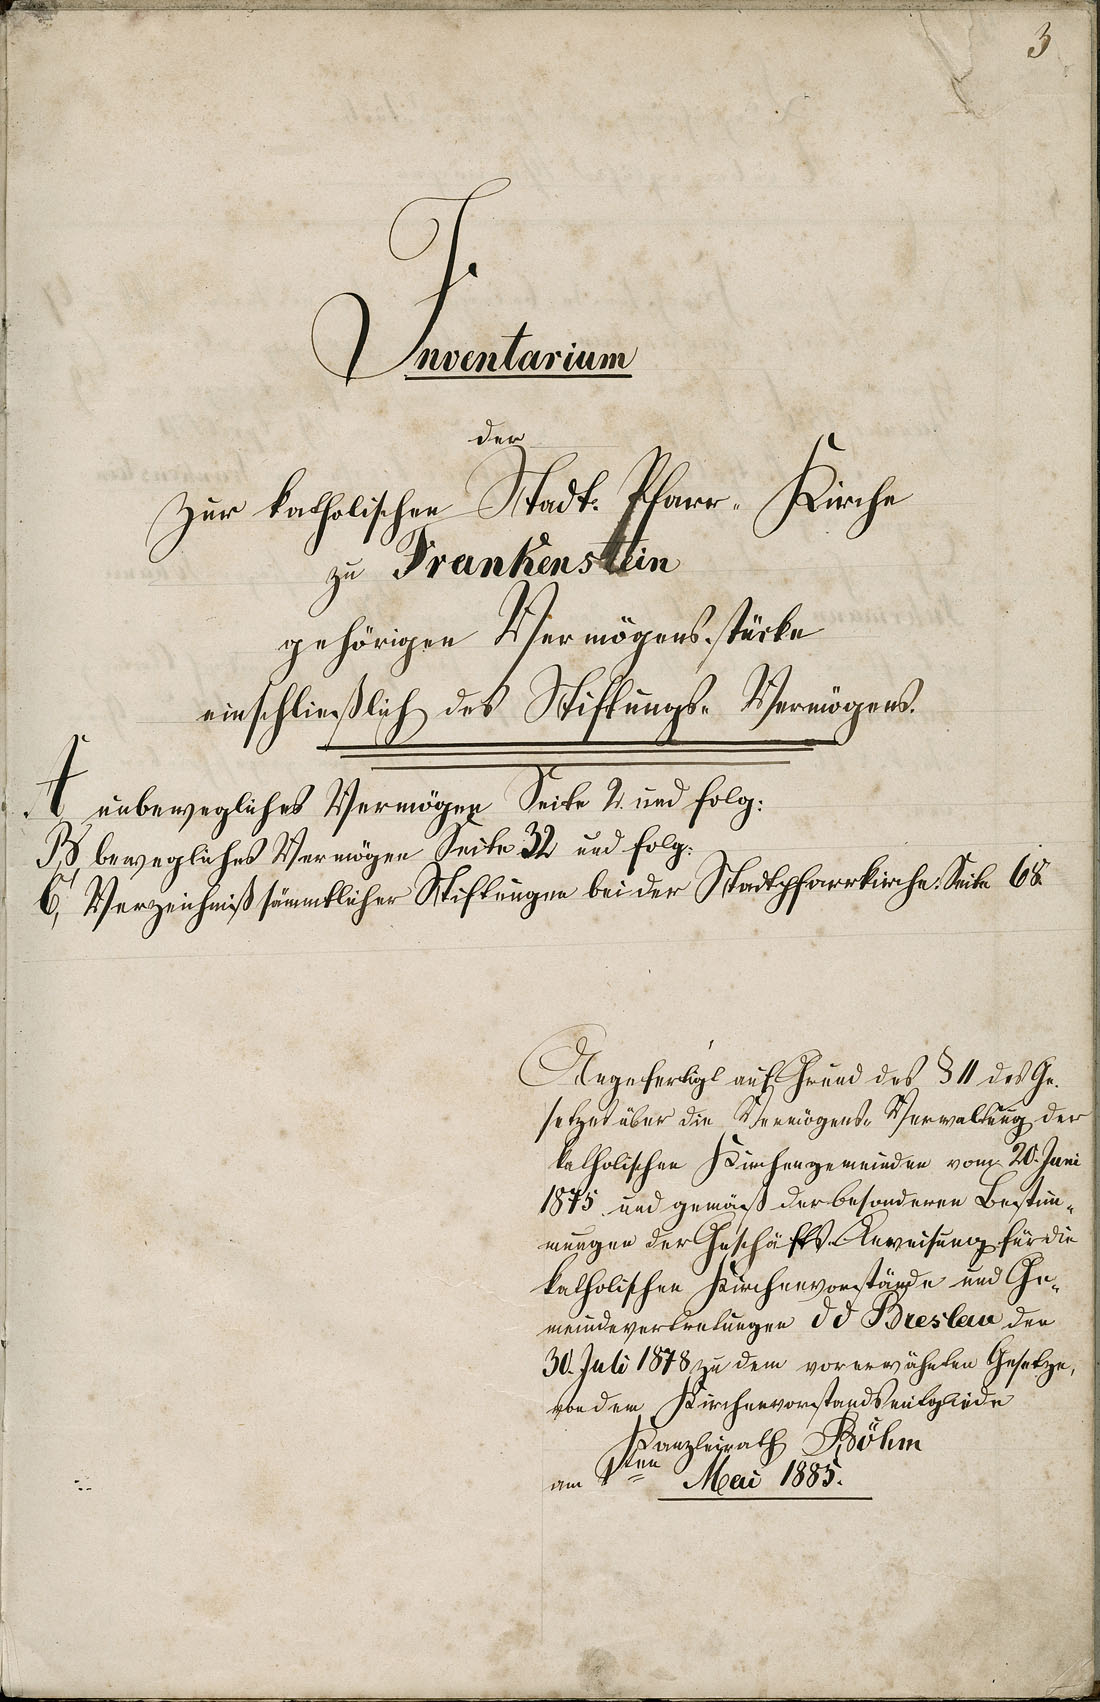 3
Inventarium
der
zur katholischen Stadt- Pfarr- Kirche
zu Frankenstein
gehörigen Vermögens-stücke
einschließlich des Stiftungs- Vermögens.
A unbewegliches Vermögen Seite 2 und folg:
B, bewegliches Vermögen Seite 32 und folg:
C, Verzeichniß sämmtlicher Stiftungen bei der Stadtpfarrkirche: Seite 68
Angefertigt auf Grund des § 11 des Ge-
setzes über die Vermögens- Verwaltung der
katholischen Kirchengemeinden vom 20. Juni
1875 und gemäß der besonderen Bestim-
mungen der Geschäfts-Anweisung für die
katholischen Kirchenvorstände und Ge-
meindevertretungen d d Breslau den
30. Juli 1878 zu dem vorerwähnten Gesetze,
von dem Kirchenvorstandsmitgliede
Kanzleirath Böhm
am 1ten Mai 1885.